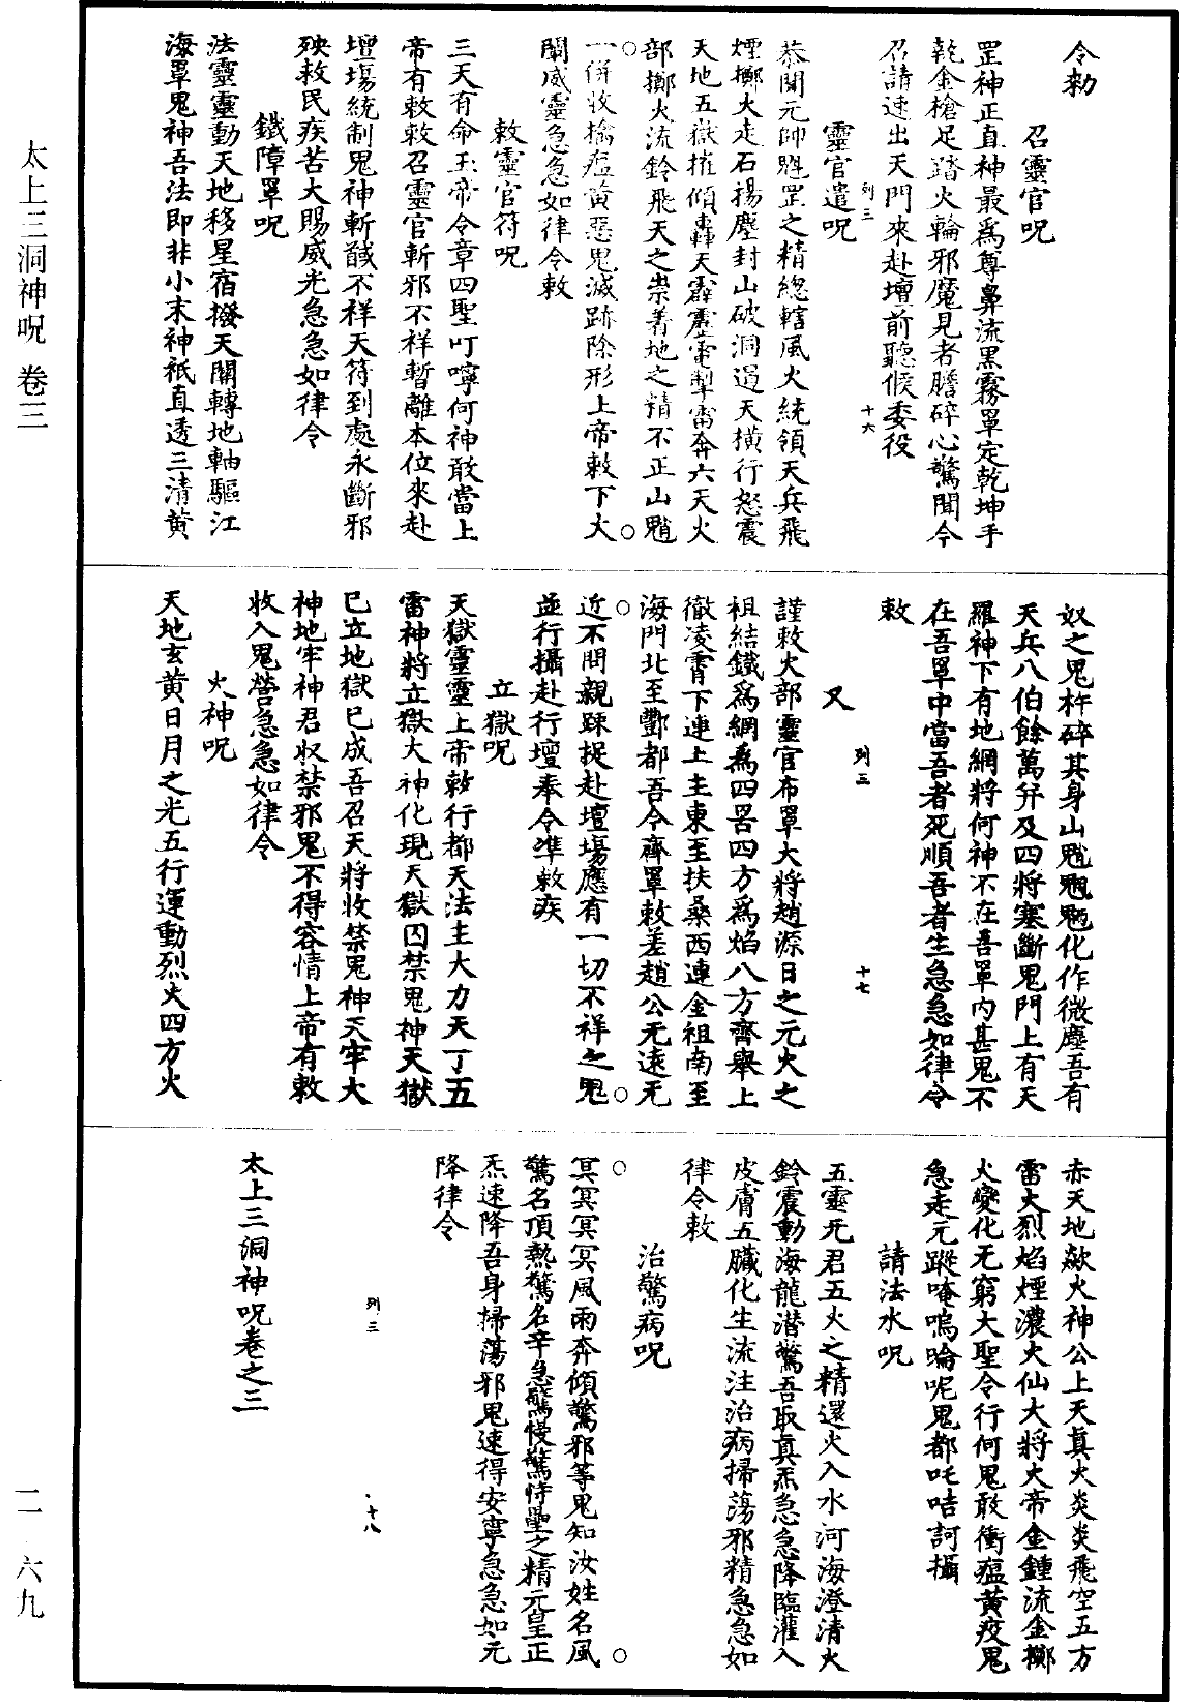 太上三洞神呪 卷三
令勑
召靈官呪
罡神正直神最為尊鼻流黑霧罩定乾坤手
乾金槍足踏火輪邪魔見者膽碎心驚聞令
召請速出天門來赴壇前聽候委役
列三 十六
靈官遣呪
恭聞元帥魁罡之精總轄風火統領天兵飛
煙擲火走石揚塵封山破洞過天橫行怒震
天地五嶽摧傾轟天霹靂電掣雷奔六天火
部擲火流鈴飛天之崇着地之精不正山魈
一併收擒瘟黃惡鬼滅跡除形上帝敕下大
闡威靈急急如律令敕
敕靈官符呪
三天有命玉帝令章四聖叮嚀何神敢當上
帝有敕敕召靈官斬邪不祥暫離本位來赴
壇場統制鬼神斬馘不祥天符到處永斷邪
殃救民疾苦大賜威光急急如律令
鐵障罩呪
法靈靈動天地移星宿撥天關轉地軸驅江
海罩鬼神吾法即非小末神祇直透三清黃
奴之鬼杵碎其身山魈魍魎化作微塵吾有
天兵八伯餘萬斧及四將塞斷鬼門上有天
羅神下有地網將何神不在吾罩內甚鬼不
在吾罩中當吾者死順吾者生急急如律令
敕
列三 十七
又
謹敕火部靈官布罩大將趙源日之元火之
祖結鐵為網為四罟四方為焰八方齊舉上
徹凌霄下連上主東至扶桑西連金祖南至
海門北至酆都吾今齊罩敕差趙公无遠无
近不問親踈捉赴壇場應有一切不祥之鬼
並行攝赴行壇奉令準敕疾
立獄呪
天獄靈靈上帝敕行都天法主大力天丁五
雷神將立獄大神化現天獄囚禁鬼神天獄
已立地獄已成吾召天將收禁鬼神天牢大
神地牢神君收禁邪鬼不得容情上帝有敕
收入鬼營急急如律令
火神呪
天地玄黃日月之光五行運動烈火四方火
赤天地歘火神公上天真火炎炎飛空五方
雷火烈焰煙濃火仙大將火帝金鍾流金擲
火變化无窮大聖令行何鬼敢衝瘟黃疫鬼
急走元蹤唵嗚㖮呢鬼都吒咭訶攝
請法水呪
五靈无君五火之精還火入水河海澄清火
鈴震動海龍潛驚吾取真炁急急降臨灌入
皮膚五臟化生流注治病掃蕩邪精急急如
律令敕
治驚病呪
冥冥冥冥風雨奔傾驚邪等鬼知汝姓名風
驚名頂熱驚名辛急驚慢驚恃壘之精元皇正
炁速降吾身掃蕩邪鬼速得安寧急急如元
降律令
列三 十八
太上三洞神呪卷之三
二一六九